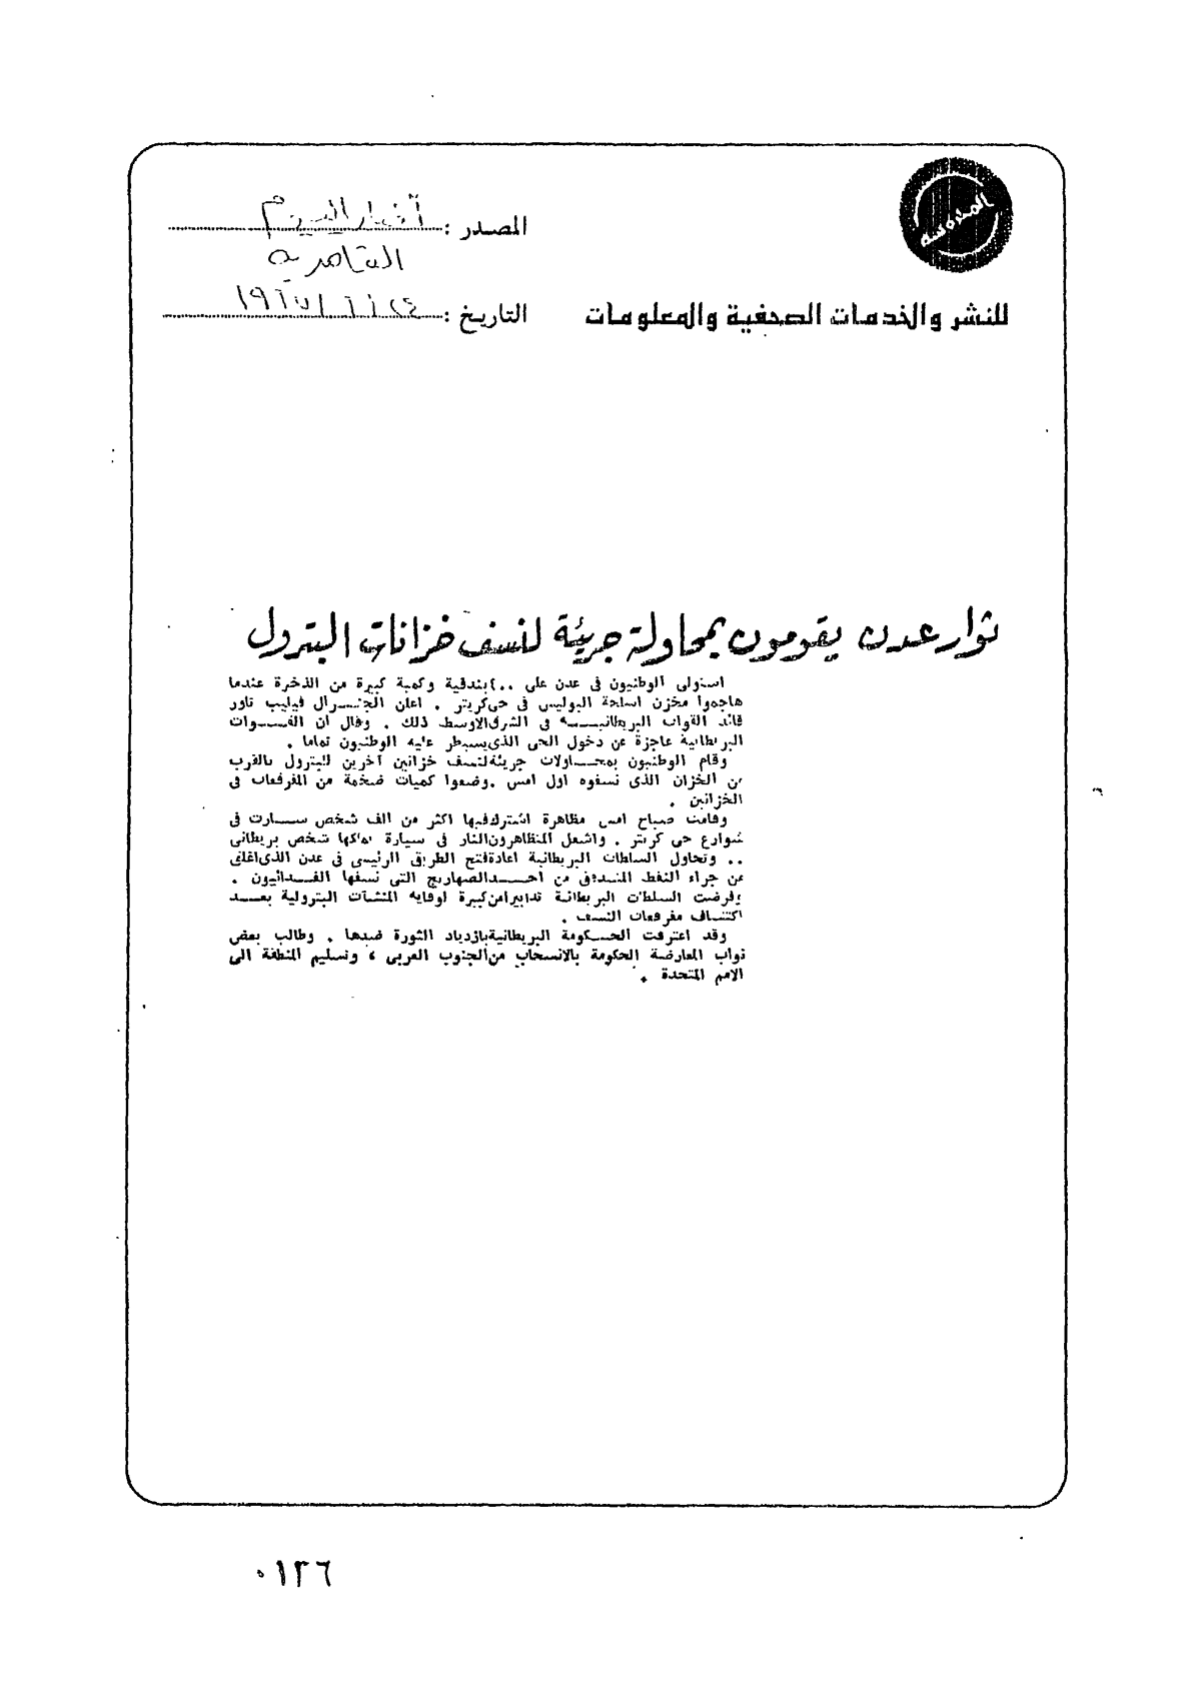 المصدر : أخبار اليوم
القاهرية
للنشر والخدمات الصحفية والمعلومات
التاريخ : ٢٤ / ٦ / ١٩٦٧
ثوار عدن يقومون بمحاولة جريئة لنسف خزانات البترول
استولى الوطنيون فى عدن على ٤٠٠ بندقية وكمية كبيرة من الذخرة عندما
هاجموا مخزن اسلحة البوليس فى حى كريتر . اعلن الجنـــرال فيليب تاور
قائد القوات البريطانيـــة فى الشرق الاوسط ذلك . وقال ان القـــوات
البريطانية عاجزة عن دخول الحى الذى يسيطر عليه الوطنيون تماما .
وقام الوطنيون بمحـــاولات جريئة لنسف خزانين آخرين للبترول بالقرب
من الخزان الذى نسفوه اول امس . وضعوا كميات ضخمة من المفرقعات فى
الخزانين .
وقامت صباح امس مظاهرة اشترك فيها اكثر من الف شخص ســـارت فى
شوارع حى كريتر . واشعل المتظاهرون النار فى سيارة يملكها شخص بريطانى
.. وتحاول السلطات البريطانية اعادة فتح الطريق الرئيسى فى عدن الذى اغلق
من جراء النفط المتدفق من احـــد الصهاريج التى نسفها الفـــدائيون .
وفرضت السلطات البريطانية تدابير امن كبيرة لوقاية المنشآت البترولية بعـــد
اكتشاف مفرقعات النسف .
وقد اعترفت الحـــكومة البريطانية بازدياد الثورة ضدها . وطالب بعض
نواب المعارضة الحكومة بالانسحاب من الجنوب العربى ، وتسليم المنطقة الى
الامم المتحدة .
٠١٢٦